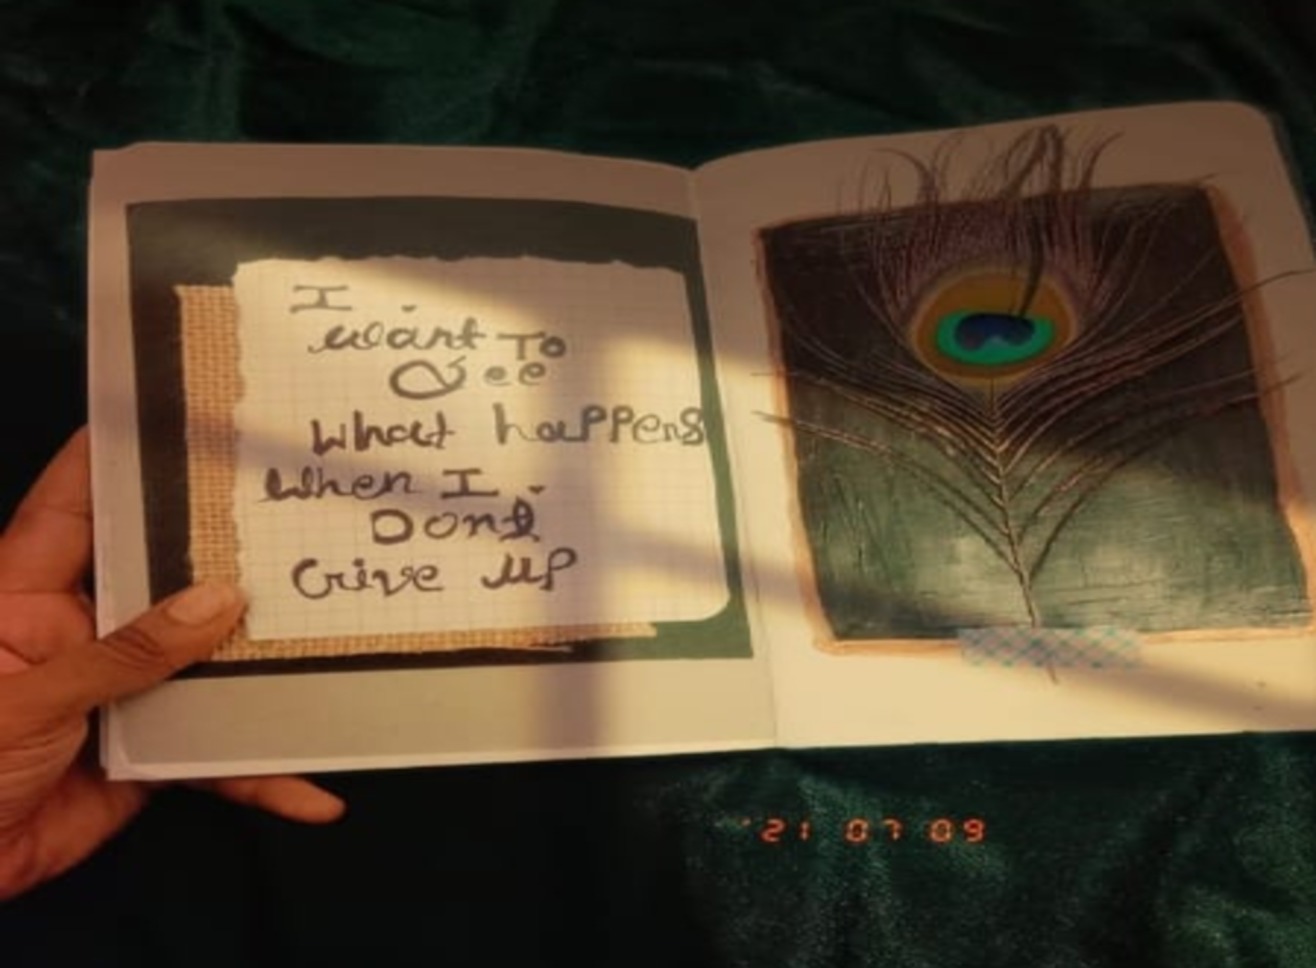 I
want To
See
What happens
When I
Dont
Give UP
'21 07 09